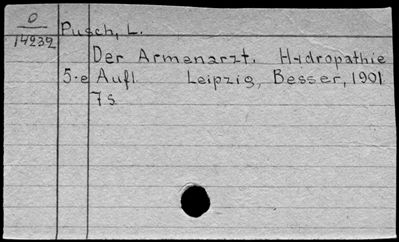 O
14232
Pusch, L.
Der Armenarzt. Hydropathie
5.e Aufl Leipzig, Besser, 1901
7s